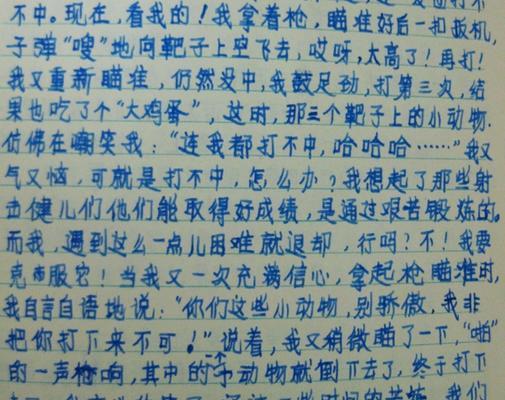 不中。现在，看我的！我拿着枪，瞄准好后一扣扳机，
子弹“嗖”地向靶子上空飞去，哎呀，太高了！再打！
我又重新瞄准，仍然没中，我鼓足劲，打第三次，结
果也吃了个“大鸡蛋”，这时，那三个靶子上的小动物，
仿佛在嘲笑我：“连我都打不中，哈哈哈……”我又
气又恼，可就是打不中，怎么办？我想起了那些射
击健儿们他们能取得好成绩，是通过艰苦锻炼的。
而我，遇到这么一点儿困难就退却，行吗？不！我要
克服它！当我又一次充满信心，拿起枪瞄准时，
我自言自语地说：“你们这些小动物，别骄傲，我非
把你打下来不可！”说着，我又稍微瞄了一下，“啪”
的一声枪响，其中的一个小动物就倒下去了，终于打下